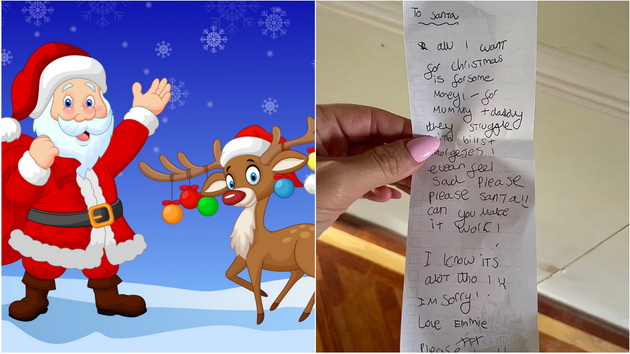 To Santa
all I want
for christmas
is for some
money! - for
mummy + daddy
they struggle
bills +
morgeses !
evean feel
sad please
please santa!!
can you make
it work!
I know its
alot tho
I'm sorry!
Love Emmie
ppt
please